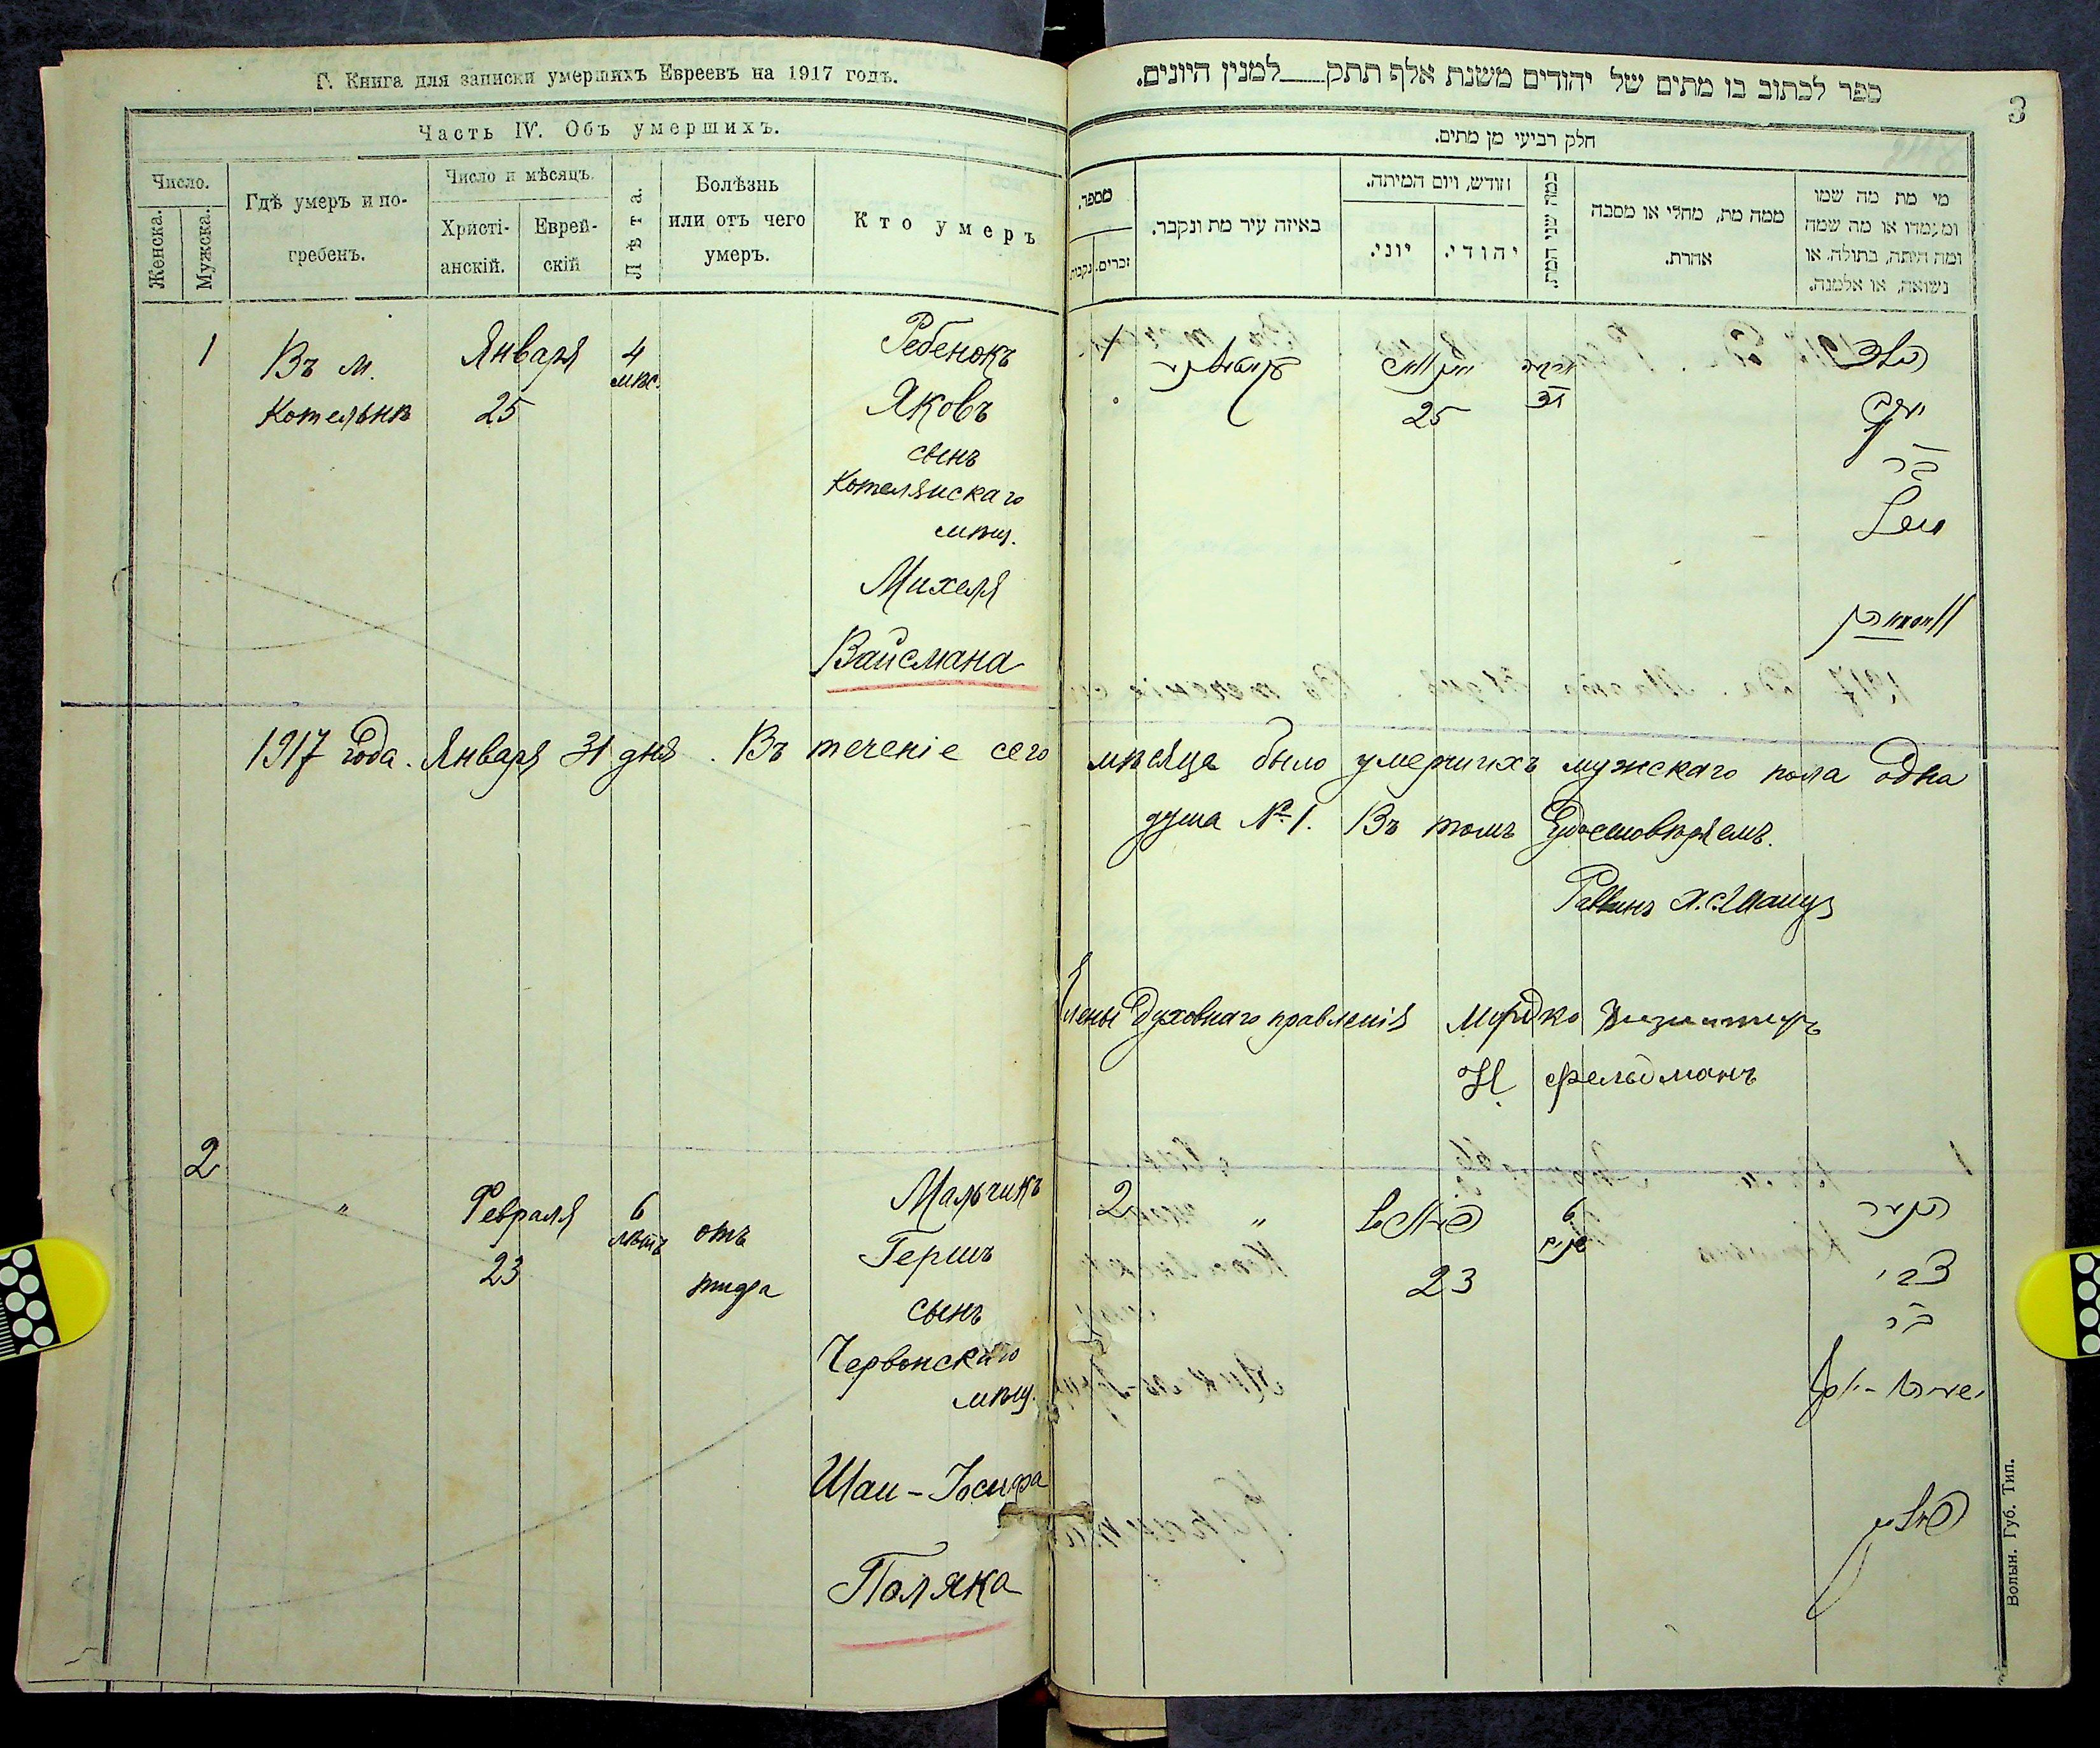 Г. Книга для записки умершихъ Евреевъ на 1917 годъ.
Часть IV. Объ умершихъ.
Число.
Женска.
Мужска.
Гдѣ умеръ и по-
гребенъ.
Число и мѣсяцъ.
Христі-
анскій.
Еврей-
скій
Лѣта.
Болѣзнь
или отъ чего
умеръ.
Кто умеръ
1
Въ м.
Котельнѣ
Января
25
4
мѣс.
Ребенокъ
Яковъ
сынъ
Котелянскаго
мѣщ.
Михеля
Вайсмана
1917 года. Января 31 дня. Въ теченіе сего
2
"
Февраля
23
6
лѣтъ
отъ
тифа
Мальчикъ
Гершъ
сынъ
Червонскаго
мѣщ.
Шаи-Іосифа
Поляка
ספר לכתוב בו מתים של יהודים משנת אלף תתק____למנין היונים.
3
חלק רביעי מן מתים.
מספר.
זכרים.
נקבות
באיזה עיר מת ונקבר.
חודש, ויום המיתה.
יוני.
יהודי.
כמה שני המת
ממה מת, מחלי או מסבה
אחרת.
מי מת מה שמו
ומעמדו או מה שמה
ומה היתה, בתולה, או
נשואה, או אלמנה.
1
25
הילד
יעקב
בר
מיכל
ווייסמאן
мѣсяца было умершихъ мужскаго пола одна
душа № 1. Въ томъ Удостовѣряемъ.
Раввинъ
Члены Духовнаго правленія Мордко
Н. Фельдманъ
2
"
23
6
הנער
צבי
בר
ישעיה-יוסף
פאליאק
Волын. Губ. Тип.